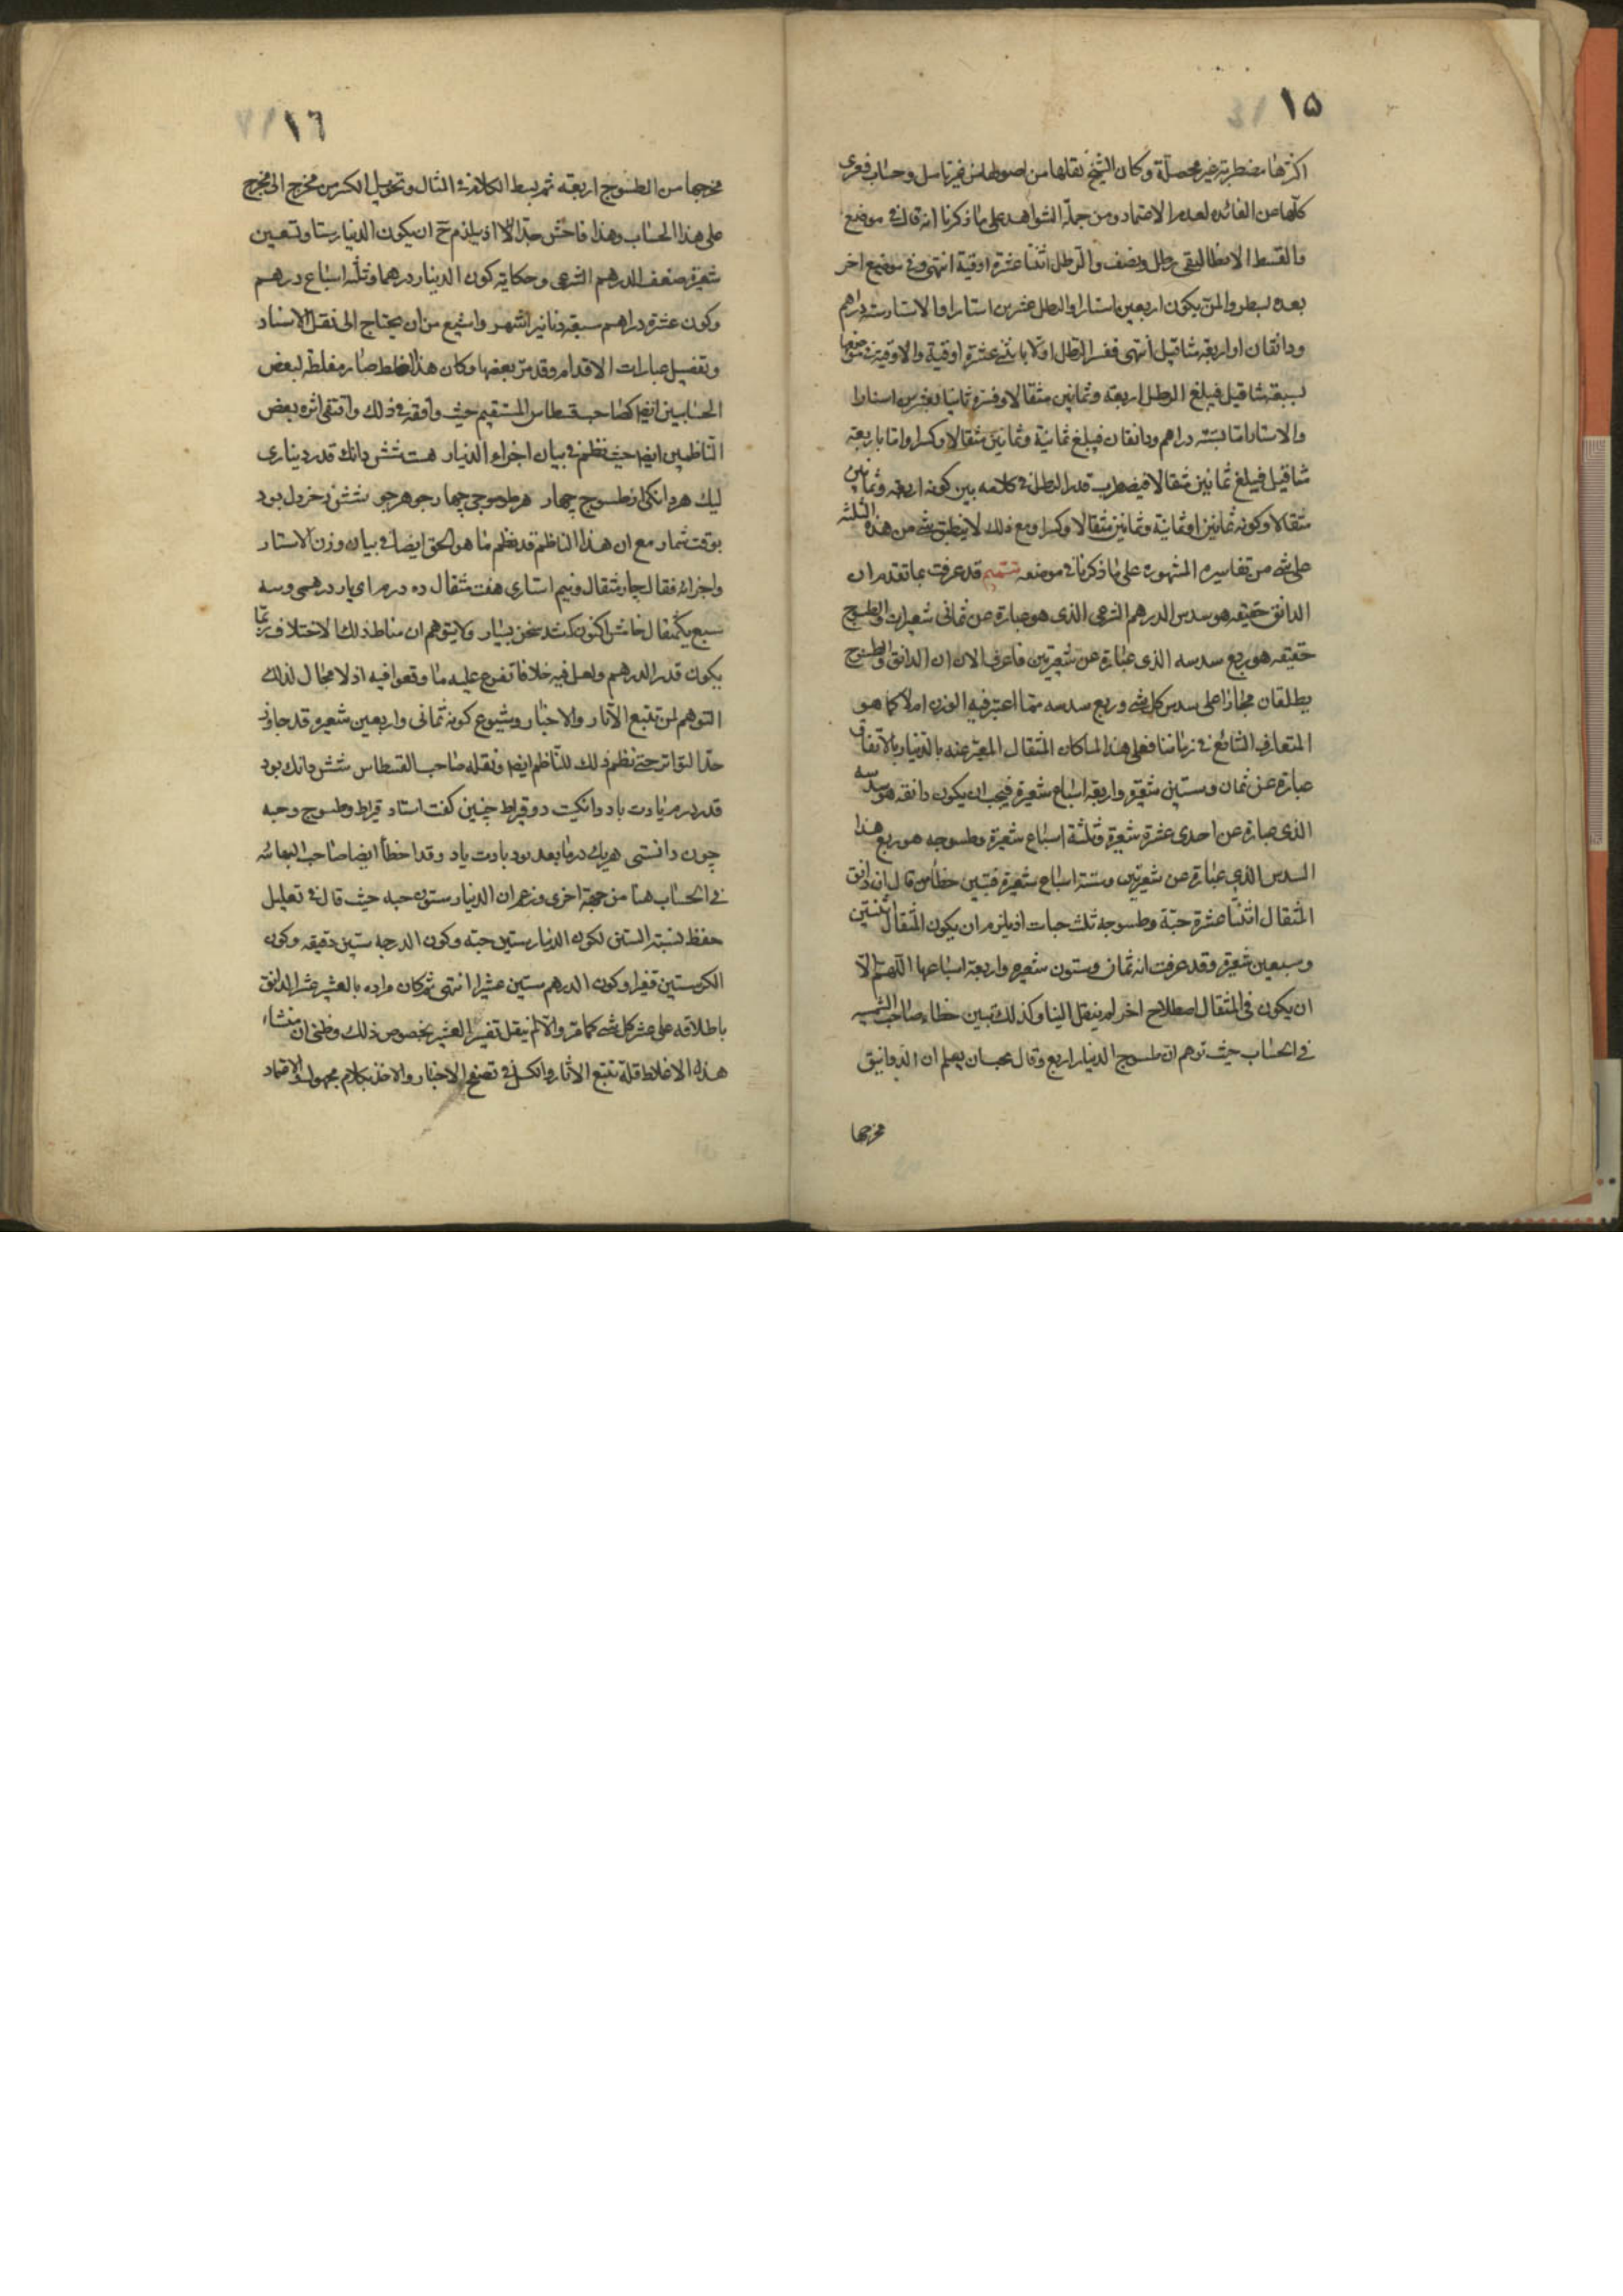 ١٥
اكثرها مضطربة غير محصلة وكان الشيخ نقلها من اصولها من غير تامل وحساب فعرى
كلها من الفائدة لعدم الاعتماد ومن جملة الشواهد على ما ذكرنا انه قال فى موضع
والقسط الانطاليقى رطل ونصف والرطل اثنتا عشرة اوقية انتهى وفى موضع اخر
بعده بسطور والمن يكون اربعين استارا والرطل عشرين استارا والاستار ستة دراهم
ودانقان او اربعة مثاقيل انتهى ففسر الرطل اولا باثنى عشرة اوقية والاوقية فى موضعها
بسبعة مثاقيل فيبلغ الرطل اربعة وثمانين مثقالا وفسره ثانيا بعشرين استارا
والاستار اما بستة دراهم ودانقان فيبلغ ثمانية وثمانين مثقالا وكسرا واما باربعة
مثاقيل فيبلغ ثمانين مثقالا فيضطرب قدر الرطل فى كلامه بين كونه اربعة وثمانين
مثقالا وكونه ثمانين او ثمانية وثمانين مثقالا وكسرا ومع ذلك لا ينطبق شى من هذه الثلثة
على شى من تفاسيره المشهورة على ما ذكرنا فى موضعه تتميم قد عرفت بما تقدم ان
الدانق حقيقة هو سدس الدرهم الشرعى الذى هو عبارة عن ثمانى شعيرات والطسوج
حقيقة هو ربع سدسه الذى عبارة عن شعيرتين فاعرف الان ان الدانق والطسوج
يطلقان مجازا على سدس كل شى وربع سدسه مما اعتبر فيه الوزن ام لا كما هو
المتعارف الشائع فى زماننا فعلى هذا لما كان المثقال المعبر عنه بالدينار بالاتفاق
عبارة عن ثمان وستين شعيرة واربعة اسباع شعيرة فيجب ان يكون دانقه هو سدسه
الذى عبارة عن احدى عشرة شعيرة وثلثة اسباع شعيرة وطسوجه هو ربع هذا
السدس الذى عبارة عن شعيرتين وستة اسباع شعيرة فتبين خطأ من قال ان دانق
المثقال اثنتا عشرة حبة وطسوجه ثلث حبات اذ يلزم ان يكون المثقال اثنتين
وسبعين شعيرة وقد عرفت انه ثمان وستون شعيرة واربعة اسباعها اللهم الا
ان يكون فى المثقال اصطلاح اخر لم ينقل الينا وكذلك تبين خطاء صاحب الشمسيه
فى الحساب حيث توهم ان طسوج الدينار اربع وقال يجب ان يعلم ان الدوانيق
مخرجها
١٦
مخرجها من الطسوج اربعة ثم بسط الكلام فى المثال وتحويل الكسر من مخرج الى مخرج
على هذا الحساب وهذا فاحش جدا اذ يلزم ح ان يكون الدينار ستا وتسعين
شعيرة ضعف الدرهم الشرعى وحكاية كون الدينار درهما وثلثة اسباع درهم
وكون عشرة دراهم سبعة دنانير اشهر واشيع من ان يحتاج الى نقل الاسناد
وتفصيل عبارات الاقدام وقد مر بعضها وكان هذا الغلط صار مغلطة لبعض
الحسابين ايضا كصاحب قسطاس المستقيم حيث وافقه فى ذلك واقتفى اثره بعض
الناظمين ايضا حيث نظم فى بيان اجزاء الدينار هست شش دانك قدر دينارى
ليك هر دانكى از طسوج چهار هر طسوجى چهار جو هر جو شش ز خردل بود
بوقت شمار مع ان هذا الناظم قد نظم ما هو الحق ايضا فى بيان وزن الاستار
واجزائه فقال چار مثقال ونيم استارى هفت مثقال ده درم اى يار درهمى وسه
سبع يكمثقال فاش اكنون شد سخن بسيار ولا يتوهم ان مناط ذلك الاختلاف ربما
يكون قدر الدرهم ولعل فيه خلافا تفرع عليه ما وقعوا فيه اذ لا مجال لذلك
التوهم لمن تتبع الآثار والاخبار وشيوع كونه ثمانى واربعين شعيرة قد جاوز
حد التواتر حتى نظم ذلك للناظم ايضا ونقله صاحب القسطاس شش دانك بود
قدر درم يادت باد دانكيت دو قيراط چنين كفت استاد قيراط وطسوج وحبه
چون دانستى هر يك درما بعد بود بادت ياد وقد اخطأ ايضا صاحب البهائيه
فى الحساب هنا من جهة اخرى وزعم ان الدينار ستون حبه حيث قال فى تعليل
حفظ نسبة الستين لكون الدينار ستين حبة وكون الدرجه ستين دقيقه وكون
الكر ستين قفيزا وكون الدرهم ستين عشيرا انتهى ثم كان مراده بالعشير عشر الدانق
باطلاقه على عشر كل شى كما مر والا لم ينقل تفسير العشير بخصوص ذلك وظنى ان منشاء
هذه الاغلاط قلة تتبع الاثار والكسل فى تصفح الاخبار والاخذ بكلام مجهول والاعتماد